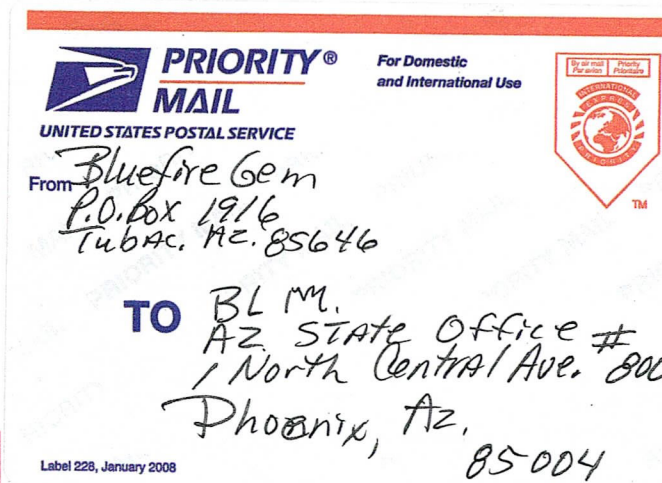 PRIORITY®
MAIL
UNITED STATES POSTAL SERVICE
For Domestic
and International Use
By air mail
Par avion
Priority
Prioritaire
INTERNATIONAL
EXPRES
PRIORITY
TM
From Bluefire Gem
P.O. Box 1916
Tubac. AZ. 85646
TO BLM.
AZ State Office #
1 North Central Ave. 800
Phoenix, Az.
85004
Label 228, January 2008